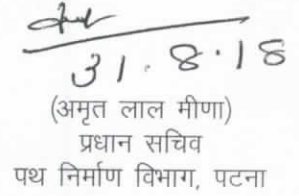 31.8.18
(अमृत लाल मीणा)
प्रधान सचिव
पथ निर्माण विभाग, पटना